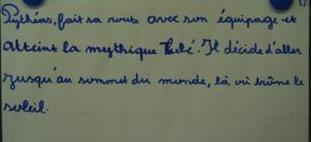 Pythéas, fait sa route avec son équipage et
atteint la mythique Thulé. Il décide d'aller
jusqu'au sommet du monde, là où trône le
soleil.